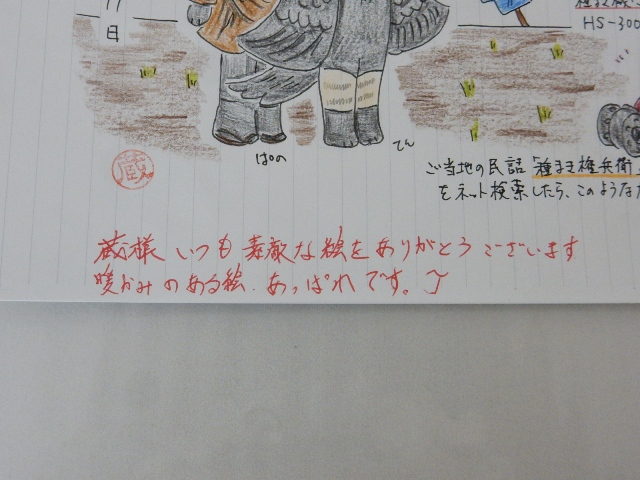 11日
HS-300
ぱの
てん
蔵
ご当地の民話「種まき権兵衛」
をネット検索したら、このような
蔵様 いつも 素敵な絵をありがとうございます
暖かみのある絵、あっぱれです。